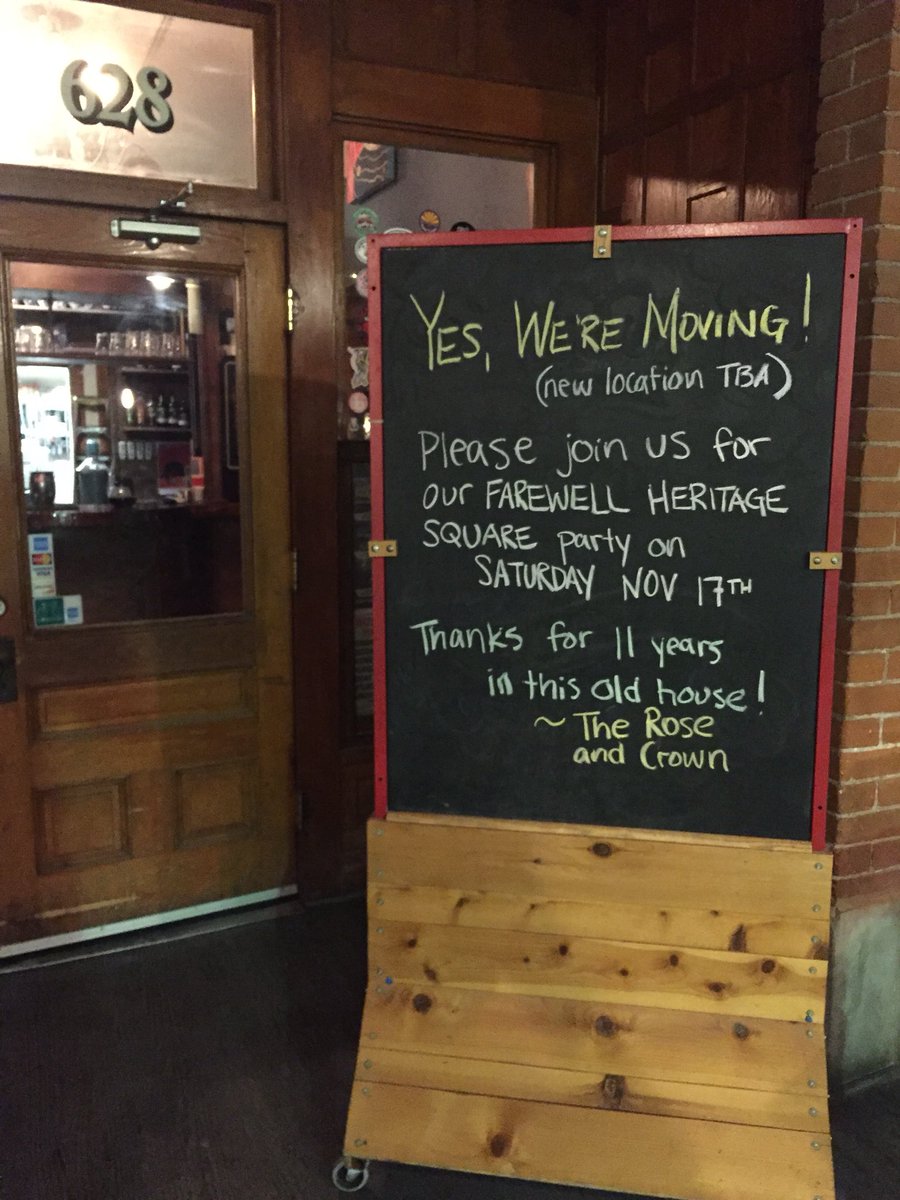 628
YES, WE'RE MOVING!
(new location TBA)
Please join us for
our FAREWELL HERITAGE
SQUARE party on
SATURDAY NOV 17TH
Thanks for 11 years
in this old house!
~ The Rose
and Crown
VISA